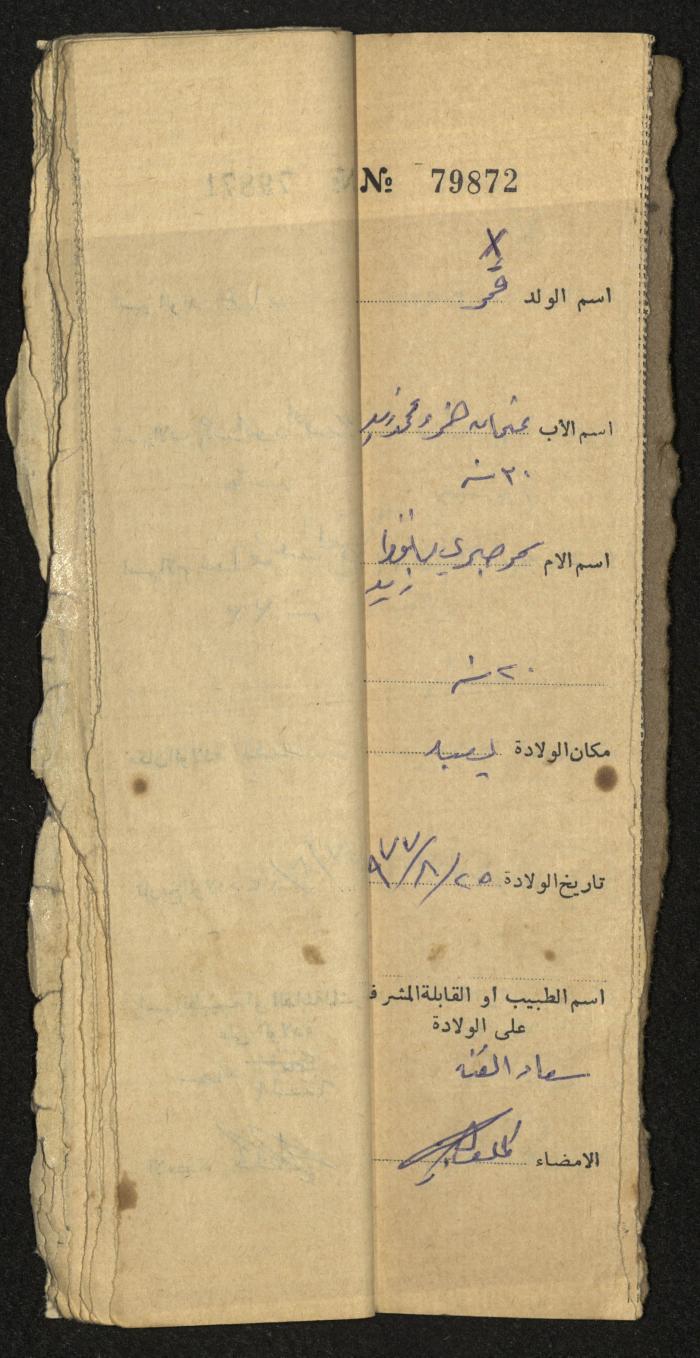 № 79872
اسم الولد قمر
اسم الأب عثمان خضر محمد زيد
٣٠ سنة
اسم الام سحر صبري
زيد
٢٠ سنة
مكان الولادة يعبد
تاريخ الولادة ٢٥/٨/٩٧٧
اسم الطبيب او القابلة المشرفة
على الولادة
سعاد
الامضاء